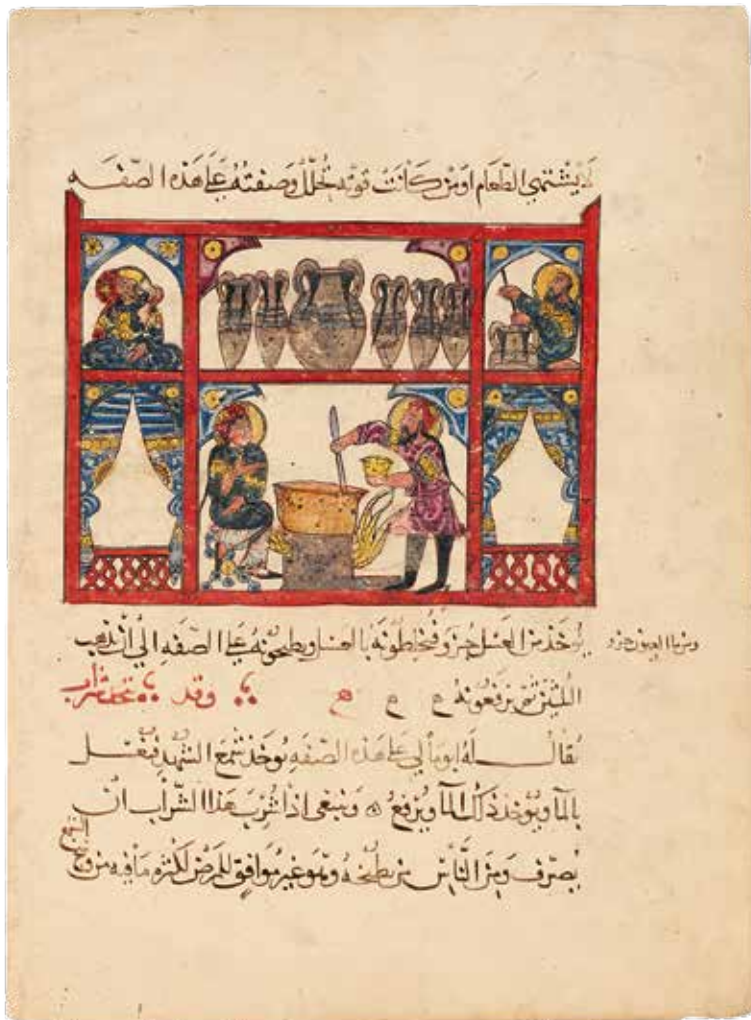 لا يشتهي الطعام اومن كانت قوته تحلل وصفته على هذه الصفه
يوخذ من العسل جزو فيخلطونه بالعسل ويطبخونه على الصفه الى ان يذهب
ومن ما العيون جزو
الثلثين ثم يرفعونه ه ه ه وقد يتخذ شراب
يقال له ابومالي على هذه الصفه يوخذ شمع الشهد فيغسل
بالما ويوخذ ذلك الما ويرفع ه وينبغي اذا شرب هذا الشراب ان
يصرف ومن الناس من يطبخه وهو غير موافق للمرضى لكثره ما فيه من وسخ
الشمع